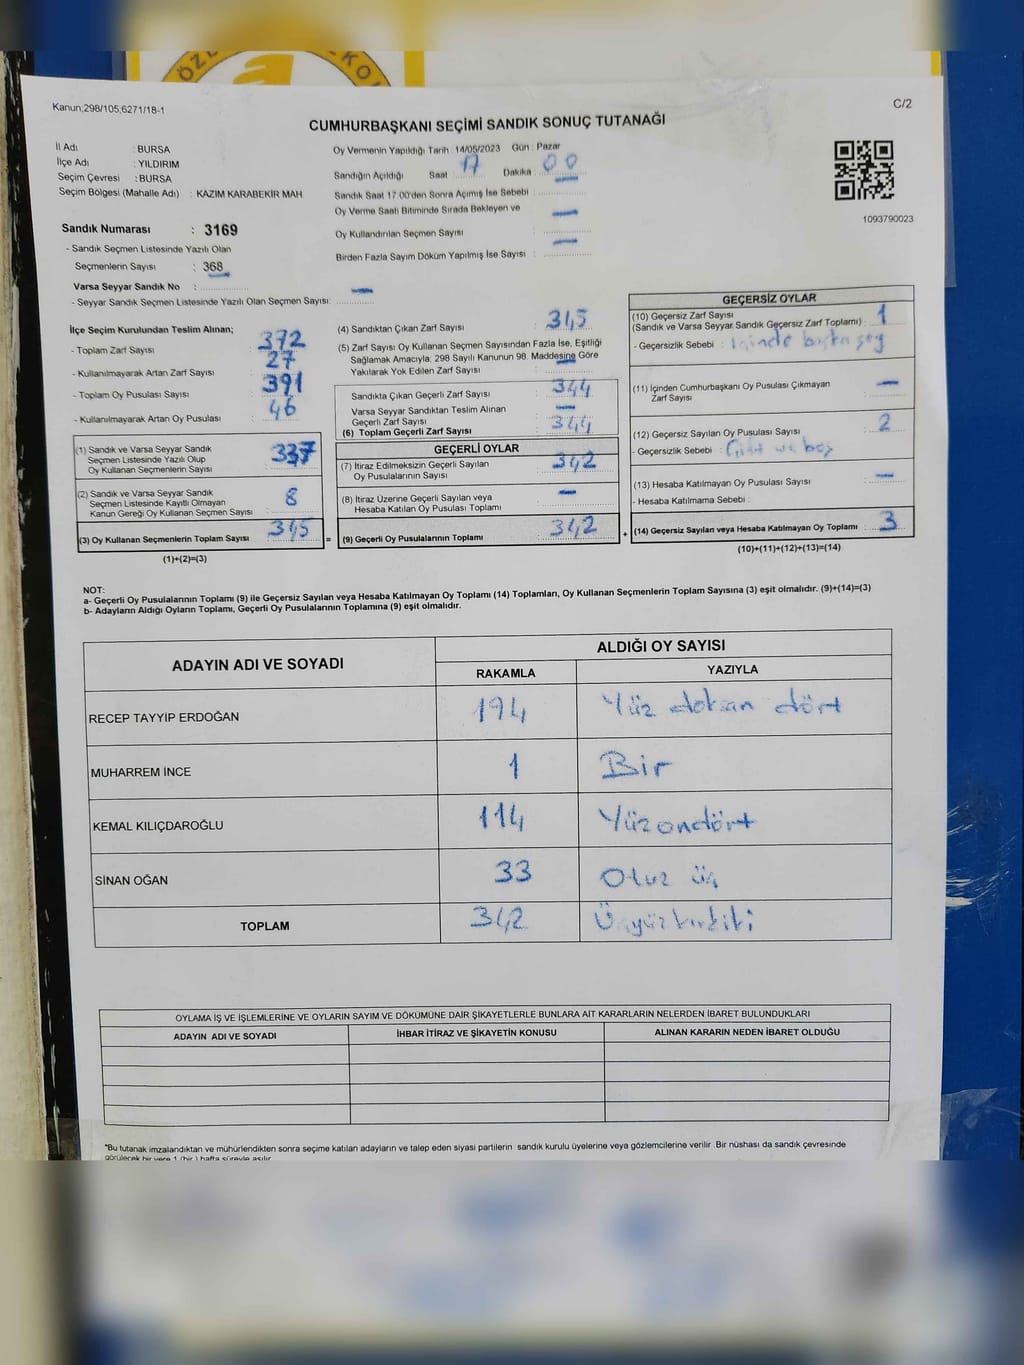 ÖZE
KOL
Kanun;298/105,6271/18-1
C/2
CUMHURBAŞKANI SEÇİMİ SANDIK SONUÇ TUTANAĞI
İl Adı : BURSA
İlçe Adı : YILDIRIM
Seçim Çevresi : BURSA
Seçim Bölgesi (Mahalle Adı) : KAZIM KARABEKİR MAH
Oy Vermenin Yapıldığı Tarih : 14/05/2023 Gün : Pazar
Sandığın Açıldığı Saat : 17 Dakika : 00
Sandık Saat 17.00'den Sonra Açımış İse Sebebi : —
Oy Verme Saati Bitiminde Sırada Bekleyen ve
Oy Kullandırılan Seçmen Sayısı : —
Birden Fazla Sayım Döküm Yapılmış İse Sayısı : —
1093790023
Sandık Numarası : 3169
- Sandık Seçmen Listesinde Yazılı Olan
Seçmenlerin Sayısı : 368
Varsa Seyyar Sandık No :
- Seyyar Sandık Seçmen Listesinde Yazılı Olan Seçmen Sayısı: —
İlçe Seçim Kurulundan Teslim Alınan;
- Toplam Zarf Sayısı 372
- Kullanılmayarak Artan Zarf Sayısı 27
- Toplam Oy Pusulası Sayısı 391
- Kullanılmayarak Artan Oy Pusulası 46
(1) Sandık ve Varsa Seyyar Sandık
Seçmen Listesinde Yazılı Olup
Oy Kullanan Seçmenlerin Sayısı 337
(2) Sandık ve Varsa Seyyar Sandık
Seçmen Listesinde Kayıtlı Olmayan
Kanun Gereği Oy Kullanan Seçmen Sayısı 8
(3) Oy Kullanan Seçmenlerin Toplam Sayısı 345
(1)+(2)=(3)
(4) Sandıktan Çıkan Zarf Sayısı 345
(5) Zarf Sayısı Oy Kullanan Seçmen Sayısından Fazla İse, Eşitliği
Sağlamak Amacıyla; 298 Sayılı Kanunun 98. Maddesine Göre
Yakılarak Yok Edilen Zarf Sayısı : —
Sandıkta Çıkan Geçerli Zarf Sayısı 344
Varsa Seyyar Sandıktan Teslim Alınan
Geçerli Zarf Sayısı —
(6) Toplam Geçerli Zarf Sayısı 344
GEÇERLİ OYLAR
(7) İtiraz Edilmeksizin Geçerli Sayılan
Oy Pusulalarının Sayısı 342
(8) İtiraz Üzerine Geçerli Sayılan veya
Hesaba Katılan Oy Pusulası Toplamı —
= (9) Geçerli Oy Pusulalarının Toplamı 342 +
GEÇERSİZ OYLAR
(10) Geçersiz Zarf Sayısı
(Sandık ve Varsa Seyyar Sandık Geçersiz Zarf Toplamı) : 1
- Geçersizlik Sebebi : İçinde başka şey
(11) İçinden Cumhurbaşkanı Oy Pusulası Çıkmayan
Zarf Sayısı —
(12) Geçersiz Sayılan Oy Pusulası Sayısı : 2
- Geçersizlik Sebebi : ve boş
(13) Hesaba Katılmayan Oy Pusulası Sayısı : —
- Hesaba Katılmama Sebebi :
(14) Geçersiz Sayılan veya Hesaba Katılmayan Oy Toplamı : 3
(10)+(11)+(12)+(13)=(14)
NOT:
a- Geçerli Oy Pusulalarının Toplamı (9) ile Geçersiz Sayılan veya Hesaba Katılmayan Oy Toplamı (14) Toplamları, Oy Kullanan Seçmenlerin Toplam Sayısına (3) eşit olmalıdır. (9)+(14)=(3)
b- Adayların Aldığı Oyların Toplamı, Geçerli Oy Pusulalarının Toplamına (9) eşit olmalıdır.
ADAYIN ADI VE SOYADI
ALDIĞI OY SAYISI
RAKAMLA YAZIYLA
RECEP TAYYİP ERDOĞAN 194 Yüz doksan dört
MUHARREM İNCE 1 Bir
KEMAL KILIÇDAROĞLU 114 Yüzondört
SİNAN OĞAN 33 Otuz üç
TOPLAM 342 Üçyüzkırkiki
OYLAMA İŞ VE İŞLEMLERİNE VE OYLARIN SAYIM VE DÖKÜMÜNE DAİR ŞİKAYETLERLE BUNLARA AİT KARARLARIN NELERDEN İBARET BULUNDUKLARI
ADAYIN ADI VE SOYADI İHBAR İTİRAZ VE ŞİKAYETİN KONUSU ALINAN KARARIN NEDEN İBARET OLDUĞU
*Bu tutanak imzalandıktan ve mühürlendikten sonra seçime katılan adayların ve talep eden siyasi partilerin sandık kurulu üyelerine veya gözlemcilerine verilir. Bir nüshası da sandık çevresinde
görülecek bir yere 1 (bir ) hafta süreyle asılır.